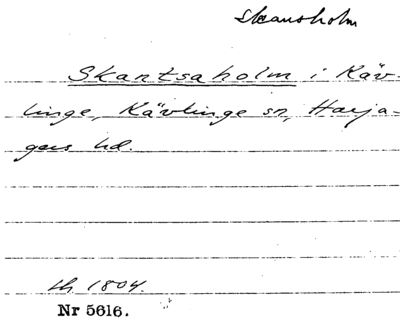 Skansholm
Skantsaholm i Käv-
linge, Kävlinge sn, Harja-
gers hd.
lh 1804.
Nr 5616.